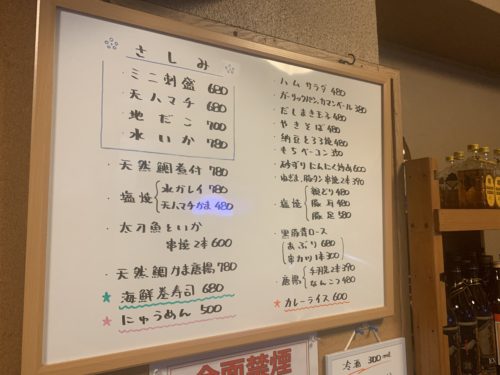 さしみ
・ミニ刺盛 680
・天ハマチ 680
・地だこ 700
・水いか 780
・天然鯛煮付 780
・塩焼 水カレイ 780
天ハマチかま 480
・太刀魚といか
串焼2本 600
・天然鯛かま唐揚 780
★海鮮巻寿司 680
★にゅうめん 500
・ハムサラダ 480
・ガーリックパン、カマンベール 380
・だしまき玉子 480
・やきそば 480
・納豆とろろ焼 480
・もちベーコン
・砂ずりにんにく炒め 600
・ねぎま、豚タン串焼2本 390
・塩焼 親どり 480
豚与 480
豚足 580
・黒豚肩ロース
あぶり 680
串カツ1本 300
・唐揚 手羽先2本 390
なんこつ 480
★カレーライス 600
全面禁煙
冷酒 300ml